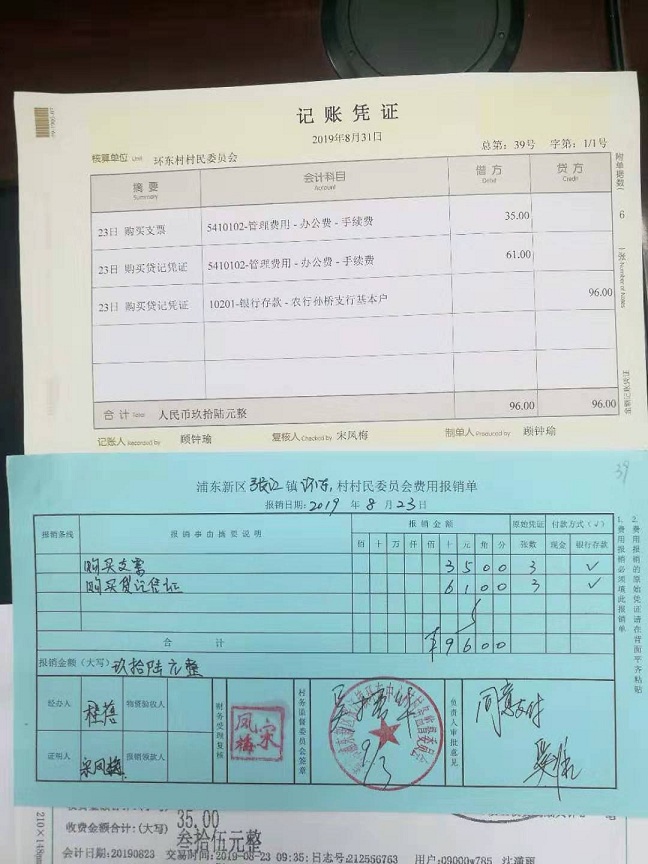 记账凭证
2019年8月31日
核算单位 Unit 环东村村民委员会 总第:39号 字第:1/1号
摘要 Summary 会计科目 Account 借方 Debit 贷方 Credit
23日 购买支票 5410102-管理费用-办公费-手续费 35.00
23日 购买贷记凭证 5410102-管理费用-办公费-手续费 61.00
23日 购买贷记凭证 10201-银行存款-农行孙桥支行基本户 96.00
合计 Total 人民币玖拾陆元整 96.00 96.00
附单据数 6 张 Number of Notes
记账人 Recorded by 顾钟瑜 复核人 Checked by 宋凤梅 制单人 Produced by 顾钟瑜
39
浦东新区张江镇环东村村民委员会费用报销单
报销日期:2019年8月23日
报销条线 报销事由摘要说明 报销金额 原始凭证 付款方式(√)
佰十万仟佰十元角分 张数 现金 银行存款
购买支票 3500 3 √
购买贷记凭证 6100 3 √
合计 ¥9600
报销金额(大写)玖拾陆元整
经办人 程蓓 物资验收人
证明人 宋凤梅 报销领款人
财务受理复核
宋凤梅
村务监督委员会签章
9/3
负责人审批意见
同意支付
1、费用报销必须填此报销单
2、费用报销的原始凭证请在背面平齐粘贴
35.00
收费金额合计:(大写) 叁拾伍元整
会计日期:20190823 交易时间:2019-08-23 09:35:日志号:212556763 用户:09000w785 沈潇丽
210×148mm